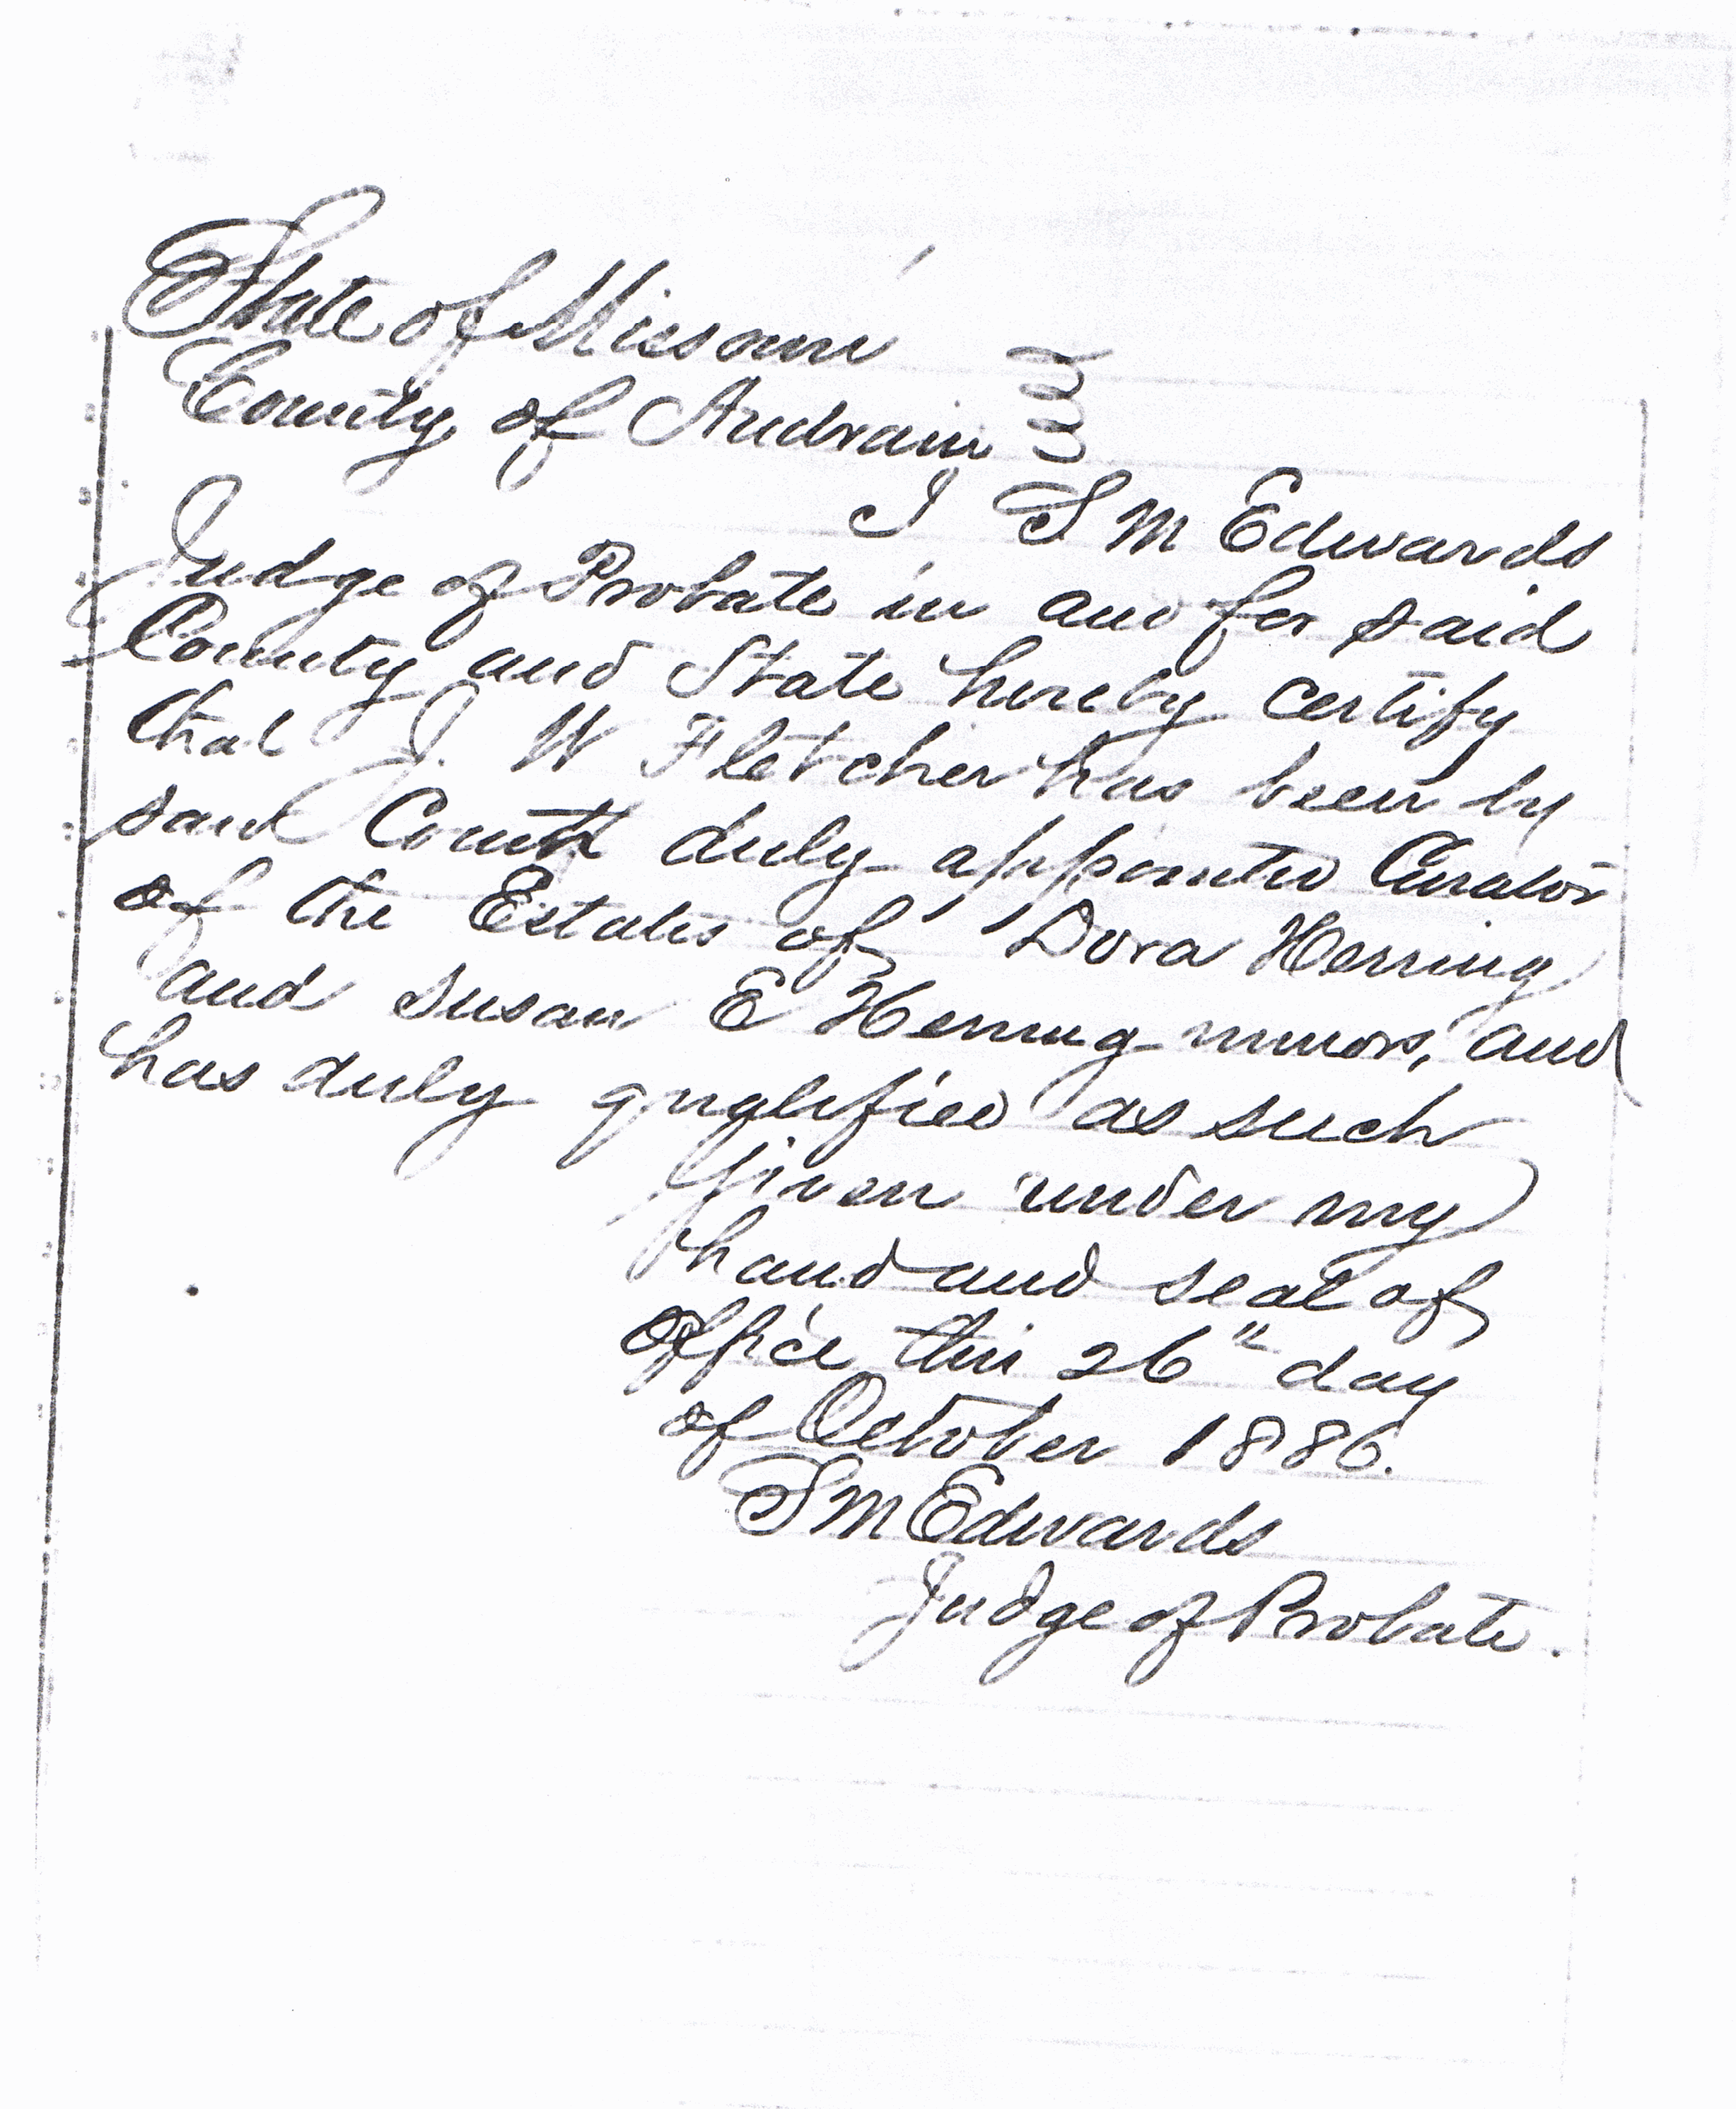 State of Missouri
County of Audrain
I S M Edwards
Judge of Probate in and for said
County and State hereby certify
that J. W Fletcher has been by
said Court duly appointed Curator
of the Estates of Dora Herring
and Susan E Herring minors, and
has duly qualified as such
Given under my
hand and seal of
Office this 26" day
of October 1886.
S M Edwards
Judge of Probate.